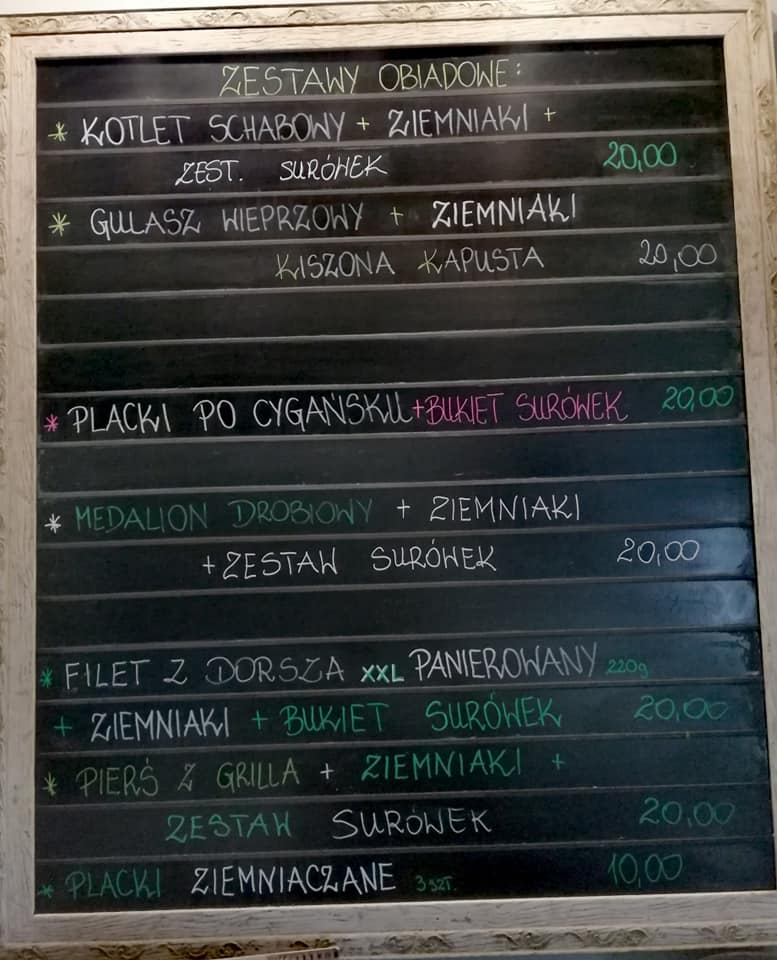 ZESTAWY OBIADOWE:
* KOTLET SCHABOWY + ZIEMNIAKI +
ZEST. SURÓWEK 20,00
* GULASZ WIEPRZOWY + ZIEMNIAKI
KISZONA KAPUSTA 20,00
* PLACKI PO CYGAŃSKU + BUKIET SURÓWEK 20,00
* MEDALION DROBIOWY + ZIEMNIAKI
+ ZESTAW SURÓWEK 20,00
* FILET Z DORSZA XXL PANIEROWANY 220g
+ ZIEMNIAKI + BUKIET SURÓWEK 20,00
* PIERŚ Z GRILLA + ZIEMNIAKI +
ZESTAW SURÓWEK 20,00
* PLACKI ZIEMNIACZANE 3 SZT. 10,00